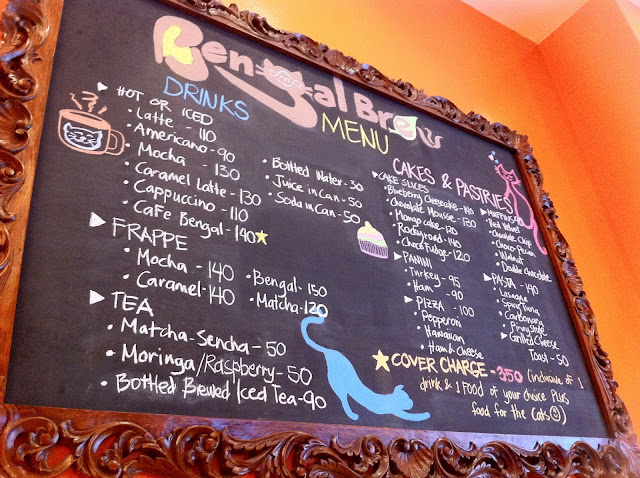 Bengal Brew
DRINKS
MENU
HOT OR ICED
• Latte - 110
• Americano - 90
• Mocha - 130
• Caramel Latte - 130
• Cappuccino - 110
• Cafe Bengal - 140
• Bottled Water - 30
• Juice in Can - 50
• Soda in Can - 50
FRAPPE
• Mocha - 140
• Caramel - 140
• Bengal - 150
• Matcha - 120
TEA
• Matcha-Sencha - 50
• Moringa/Raspberry - 50
• Bottled Brewed Iced Tea - 90
CAKES & PASTRIES
CAKE SLICES
• Blueberry Cheesecake - 140
• Chocolate Mousse - 130
• Mango Cake - 120
• Rockyroad - 140
• Choco Fudge - 120
PANINI
• Turkey - 95
• Ham - 90
PIZZA - 100
• Pepperoni
• Hawaiian
• Ham & Cheese
• Red Velvet
• Chocolate Chip
• Choco-Pecan
• Walnut
• Double chocolate
PASTA - 140
• Lasagna
• Spicy Tuna
• Carbonara
• Pinoy Style
Grilled Cheese
Toast - 50
COVER CHARGE - 350 (inclusive of 1
drink & 1 food of your choice Plus
food for the Cats ☺))